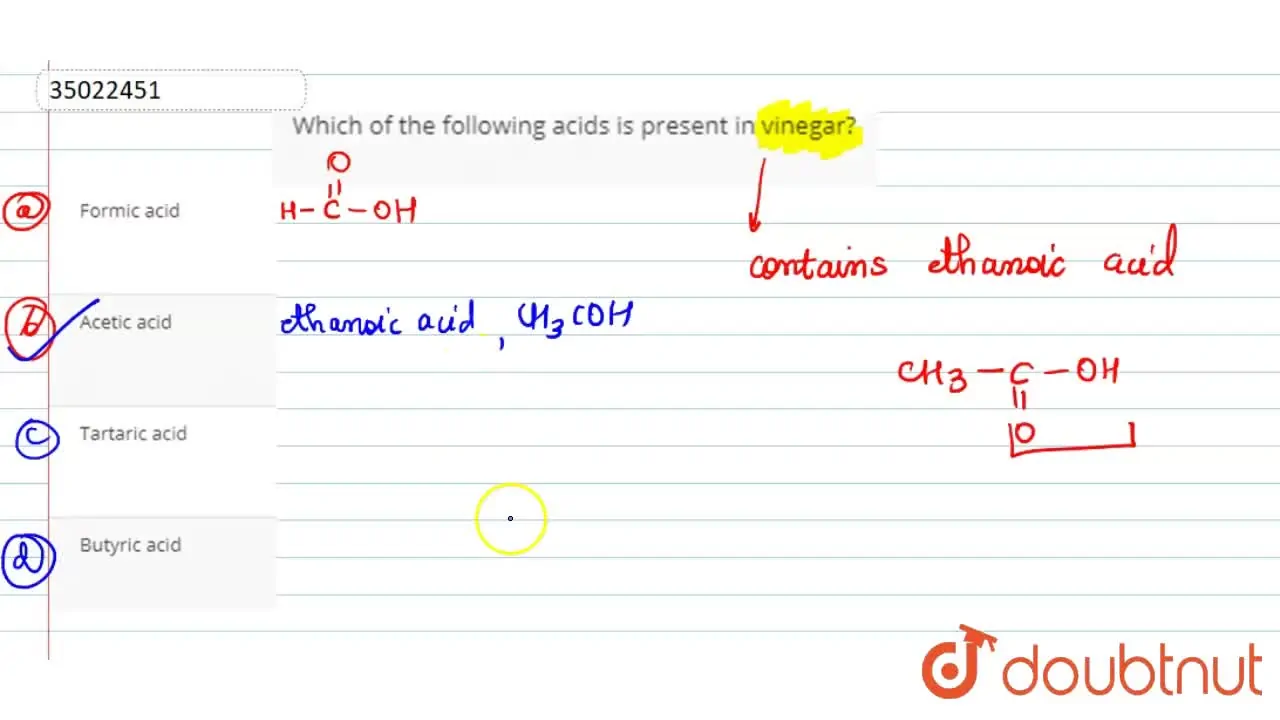 35022451
Which of the following acids is present in vinegar?
O
||
H - C - OH
a Formic acid
contains ethanoic acid
b Acetic acid
ethanoic acid, CH3COH
CH3 - C - OH
||
O
c Tartaric acid
d Butyric acid
doubtnut